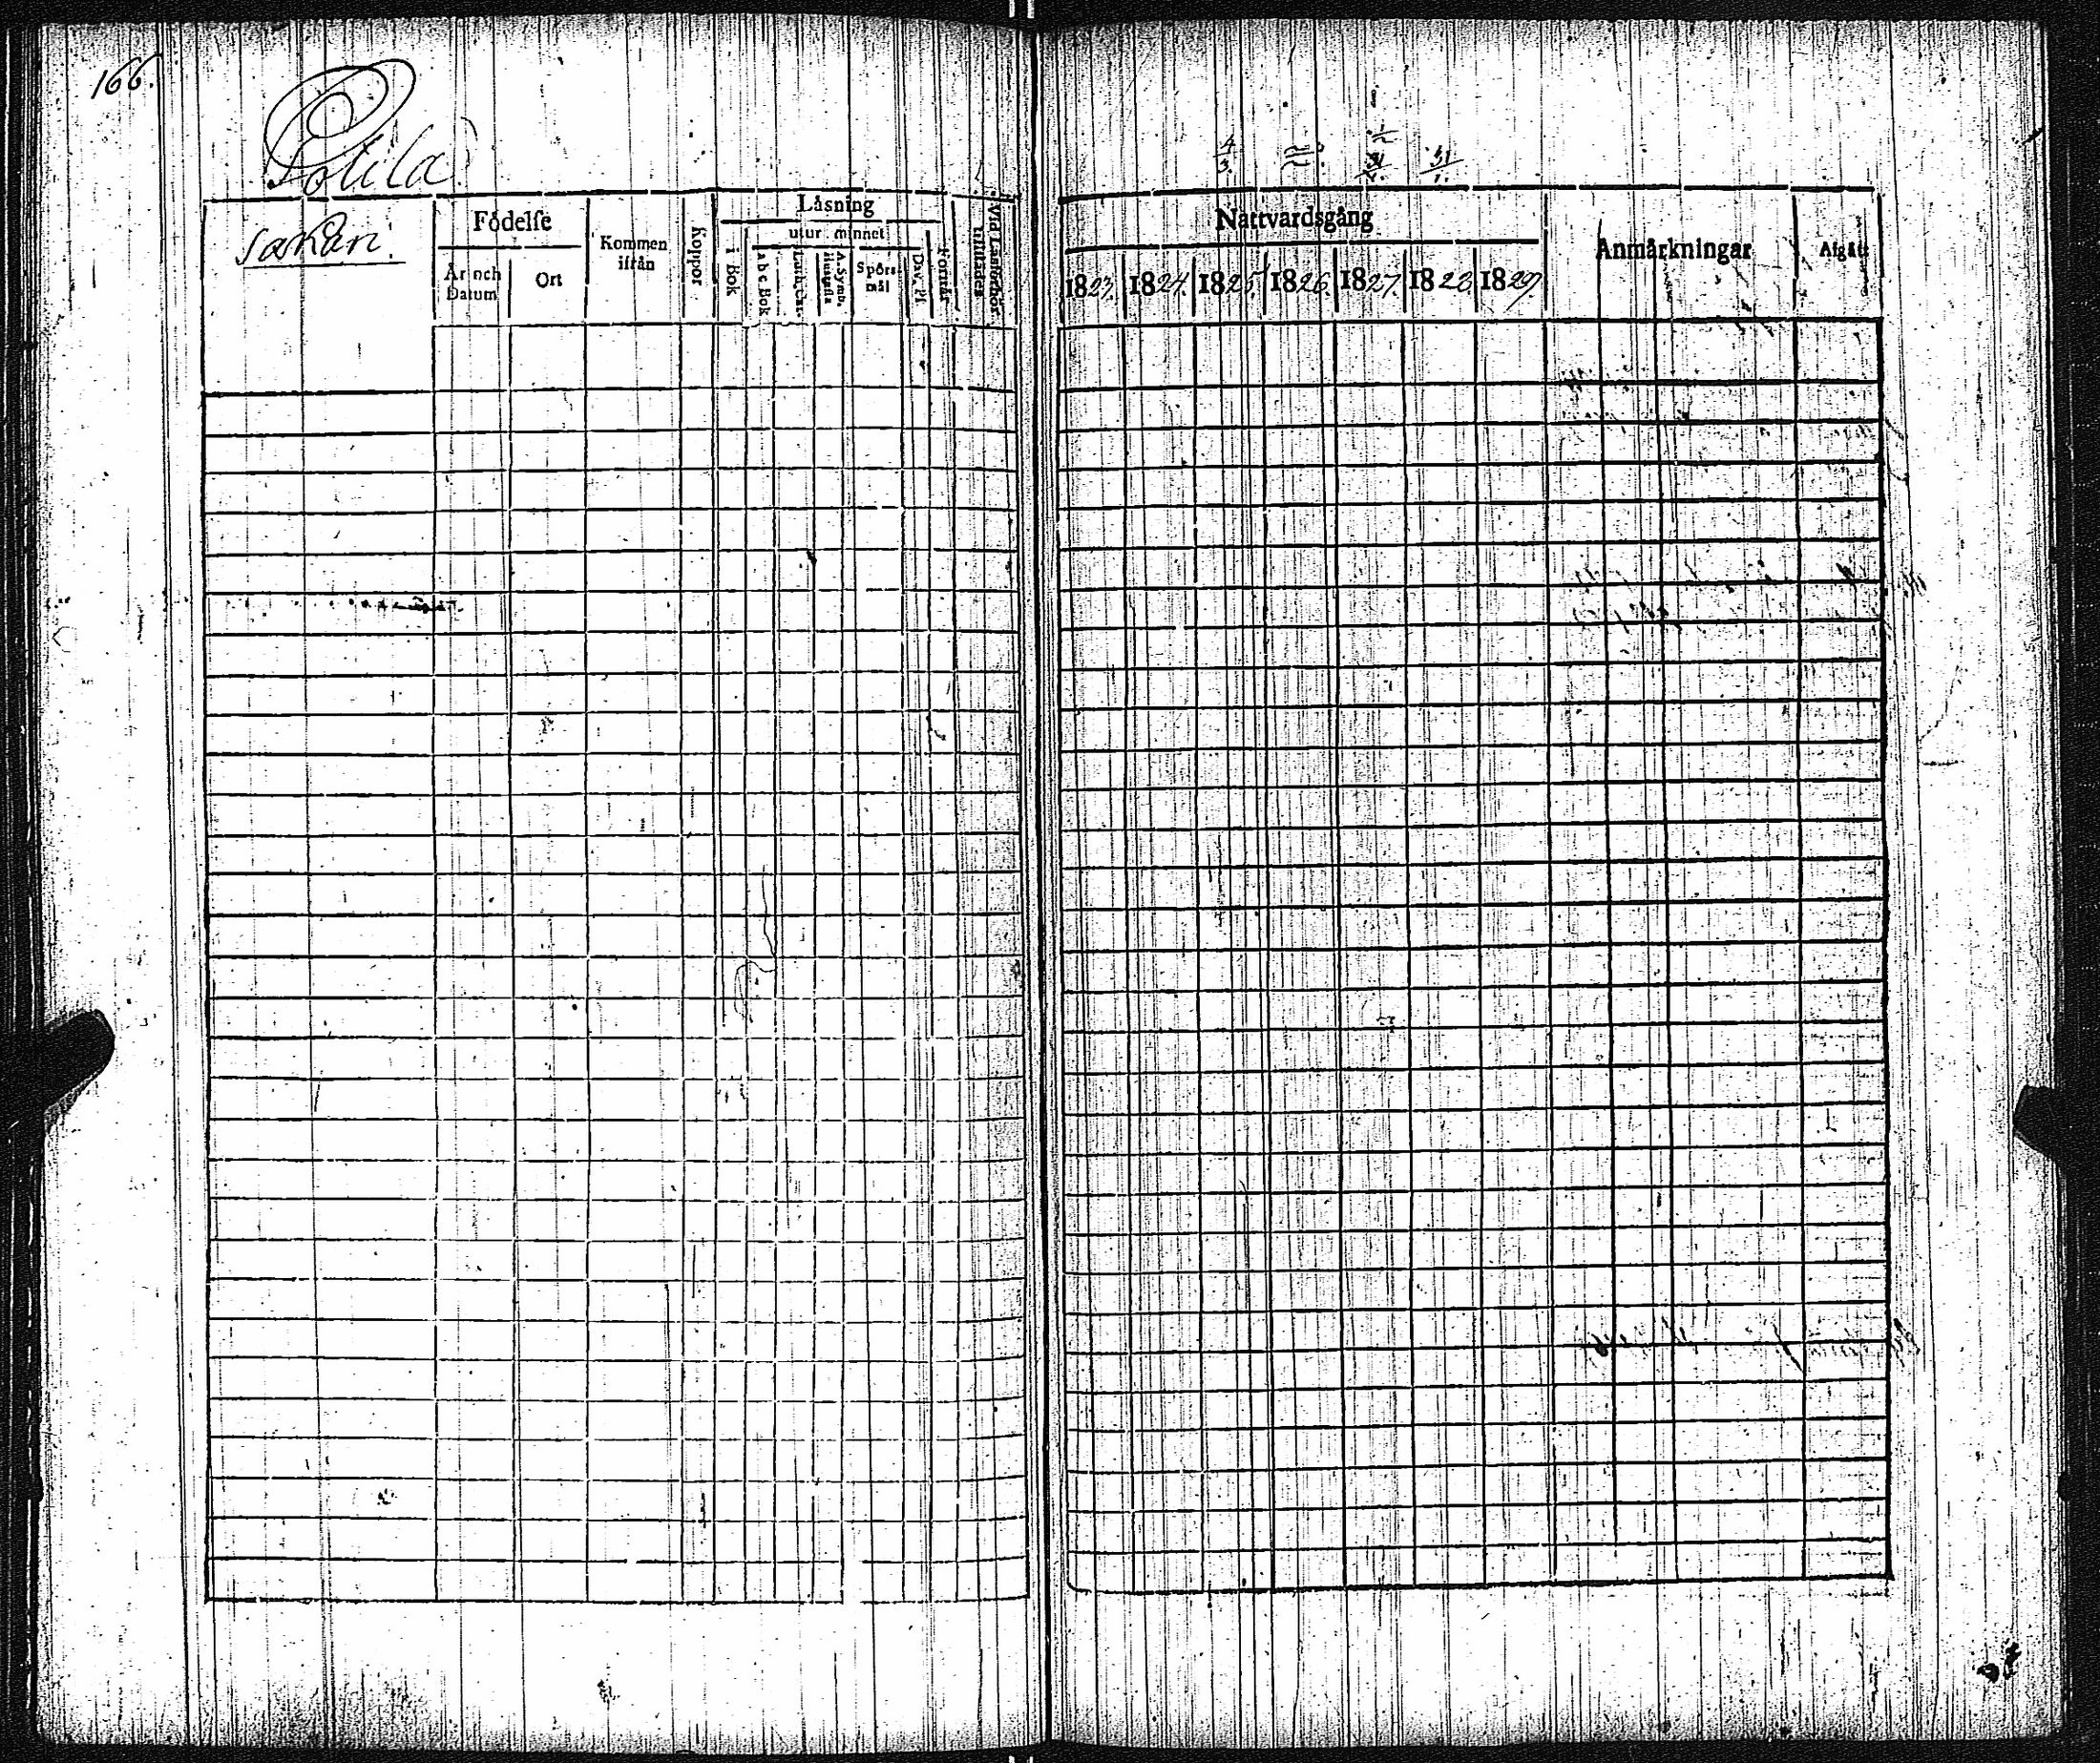 166.
Sotila
Sakari.
Födelse
År och Datum
Ort
Kommen ifrån
Koppor
Läsning
i Bok
utur minnet
a b c Bok
Luth. Cat.
A. Symb.
Spörsmål
Dav. Ps.
Förstår
Vid Läsförhör tillstädes
4/3.
31/1.
Nattvardsgång
1823. 1824. 1825. 1826. 1827. 1828. 1829.
Anmärkningar
Afgått